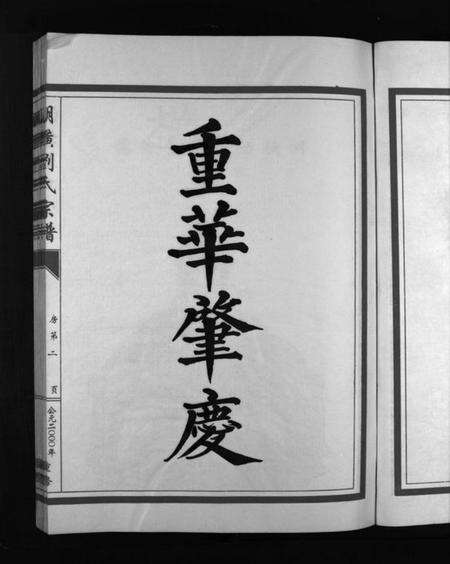 重華肇慶
劉氏宗譜
房第二頁
公元二〇〇〇年